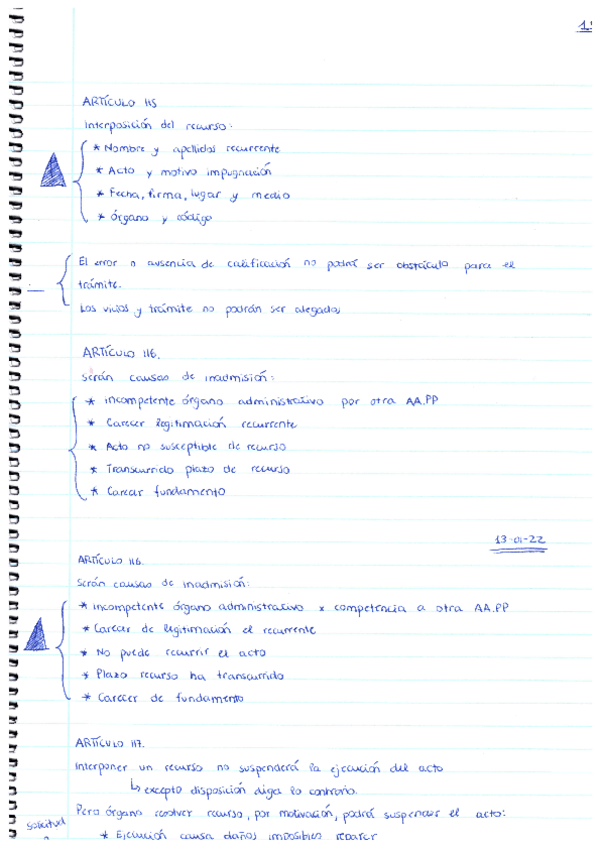 ARTÍCULO 115
Interposición del recurso:
* Nombre y apellidos recurrente
* Acto y motivo impugnación
* Fecha, firma, lugar y medio
* Órgano y código
El error o ausencia de calificación no podrá ser obstáculo para el
trámite.
Los vicios y trámite no podrán ser alegados
ARTÍCULO 116.
Serán causas de inadmisión:
* incompetente órgano administrativo por otra AA.PP
* Carecer legitimación recurrente
* Acto no susceptible de recurso
* Transcurrido plazo de recurso
* Carecer fundamento
13-01-22
ARTÍCULO 116.
Serán causas de inadmisión:
* incompetente órgano administrativo x competencia a otra AA.PP
* Carecer de legitimación el recurrente
* No puede recurrir el acto
* Plazo recurso ha transcurrido
* Carecer de fundamento
ARTÍCULO 117.
Interponer un recurso no suspenderá la ejecución del acto
↳ excepto disposición diga lo contrario.
Pero órgano resolver recurso, por motivación, podrá suspender el acto:
Solicitud
* Ejecución causa daños imposibles reparar